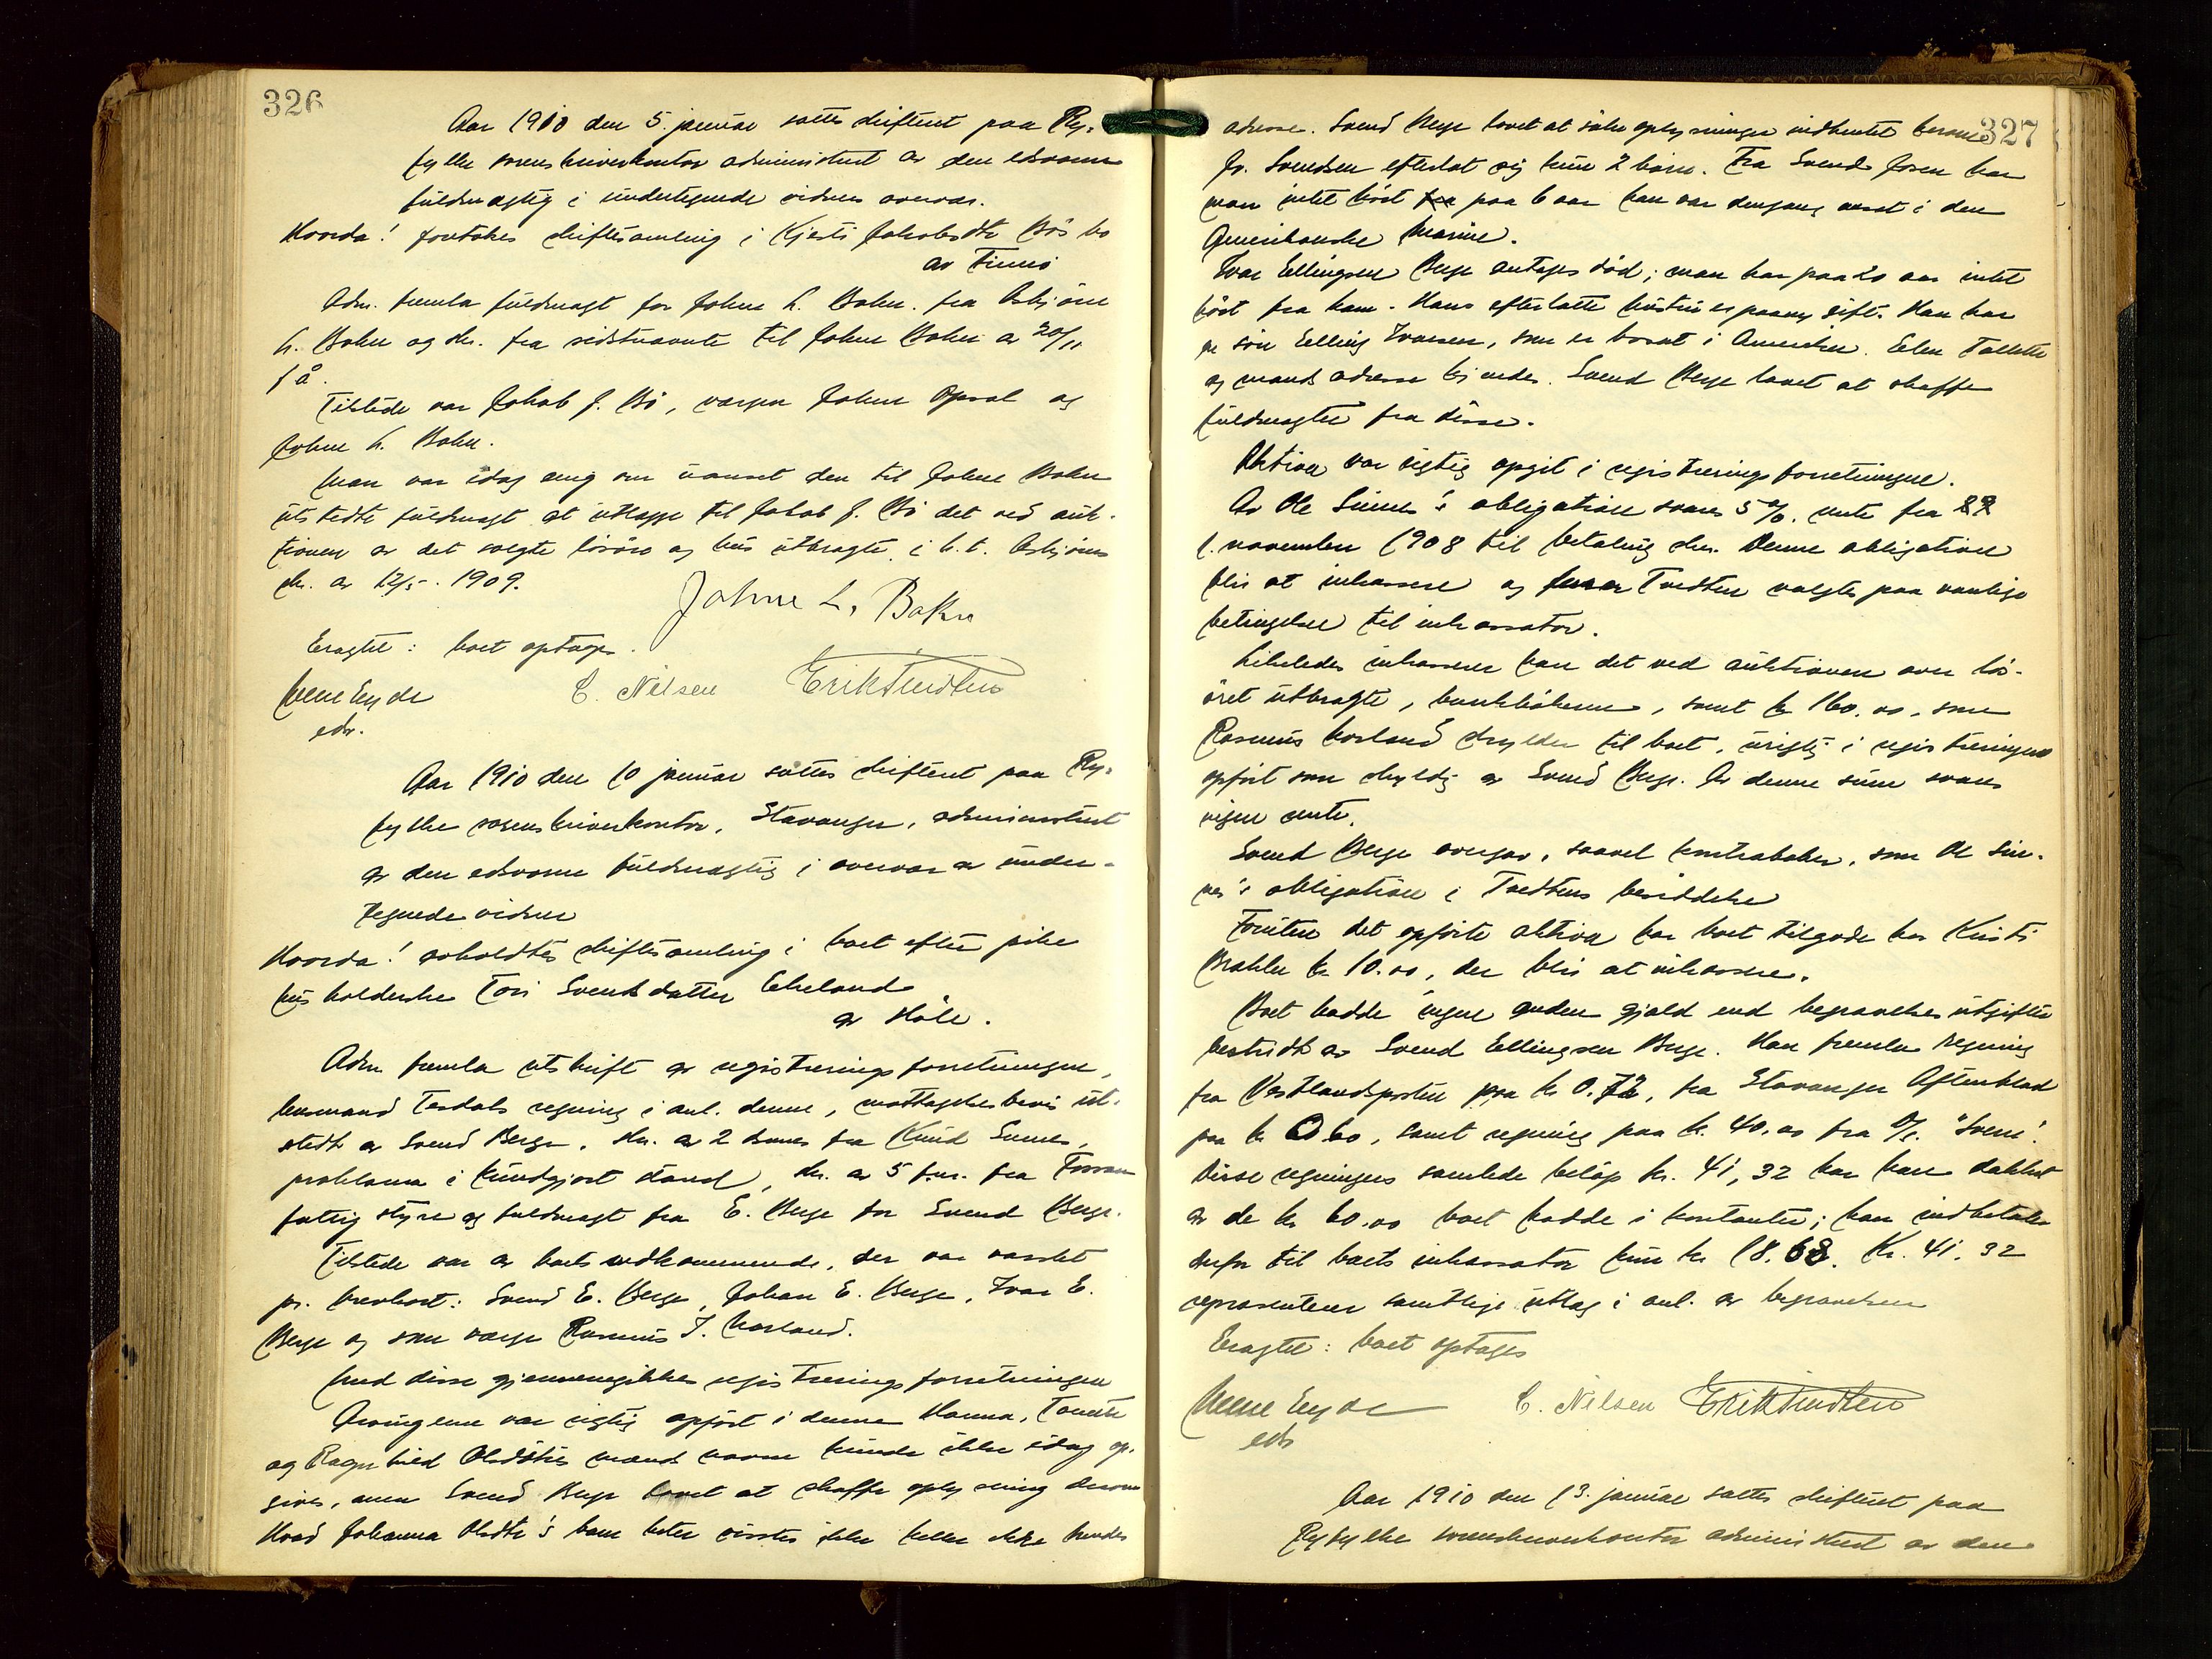 326
Aar 1910 den 5. januar sattes skifteret paa Ry-
fylke sorenskriverkontor administrert av den edsvorne
fuldmægtig i undertegnede vidners overvær.
Hvorda! foretokes skiftesamling i Kjersti Jakobsdtr Bös bo
av Finnö
Adm. fremla fuldmagt for Johne L. Bokn fra Asbjörn
L. Bokn og skr. fra sidstnævnte til Johne Bokn av 20/11
f å.
Tilstede var Jakob J. Bö, vergen Johne Opsal og
Johne L. Bokn.
Man var idag enig om uanset den til Johne Bokn
utstedte fuldmagt at utlægge til Jakob J. Bö det ved auk-
tionen av det solgte lösöre og hus utbragte i h. t. Asbjörns
skr. av 12/5. 1909.
Johne L. Bokn
Eragtet: boet optages.
Nene Eyde C. Nilsen Erik Tvedten
eds.
Aar 1910 den 10 januar sattes skifteret paa Ry-
fylke sorenskriverkontor, Stavanger, administrert
av den edsvorne fuldmægtig i overvær av under-
tegnede vidner
Hvorda! avholdtes skiftesamling i boet efter pike
husholderske Tori Svendsdatter Eikeland
av Höle.
Adm fremla utskrift av registreringsforretningen,
lensmand Tesdals regning i anl. denne, mottagelsesbevis ut-
stedt av Svend Berge, skr. av 2 dennes fra Knud Sunes,
proklama i kundgjort stand, skr. av 5 f.m. fra Forsan
fattigstyre og fuldmagt fra E. Berge for Svend Berge.
Tilstede var av boets vedkommende, der var varslet
pr. brevkort: Svend E. Berge, Johan E. Berge, Ivar E.
Berge og som verge Rasmus T. Norland.
Med disse gjennemgikkes registreringsforretningen
Arvingerne var rigtig opfört i denne Hanna, Tonette
og Ragnhild Olsdötres mands navne kunde ikke idag op-
gives, men Svend Berge lovet at skaffe oplysning derom
Hvad Johanna Olsdtr's barn heter visstes ikke heller ikke hendes
327
adresse. Svend Berge lovet at söke oplysninger indhentet herom
Jo. Svendsen efterlot sig kun 2 barn. Fra Svend Josen har
man intet hört paa 6 aar han var dengang ansat i den
Amerikanske Marine.
Ivar Ellingsen Berge antages död; man har paa 20 aar intet
hört fra ham. Hans efterlatte hustru er paany gift. Han har
en sön Elling Ivarsen, som er bosat i Amerika.
og mands adresse kjendes. Svend Berge lovet at skaffe
fuldmagter fra disse.
Aktiva var rigtig opgit i registreringsforretningen.
Av Ole Sunes's obligation svares 5 %. rente fra
1. november 1908 til betaling sker. Denne obligation
blir at inkassere og Tvedten valgtes paa vanlige
betingelser til inkassator.
Likeledes inkasserer han det ved auktionen over lös-
öret utbragte, bankbökerne, samt kr 160.00, som
Rasmus Norland skylder til boet, urigtig i registreringen
opfört som skyldig av Svend Berge. Av denne sum svares
ingen rente.
Svend Berge overgav, saavel kontrabøker, som Ole Sun-
nes's obligation i Tvedtens besiddelse
Foruten det opförte aktiva har boet tilgode hos Kirsti
Brekke kr 10.00, der blir at inkassere.
Boet hadde ingen anden gjæld end begravelsesutgifter
bestridt av Svend Ellingsen Berge. Han fremla regning
fra Vestlandsposten paa kr 0.72, fra Stavanger Aftenblad
paa kr 0.60, samt regning paa kr. 40.00 fra A/S. "Svein".
Disse regningers samlede beløp kr. 41,32 har han dækket
av de kr 60.00 boet hadde i kontanter; han indbetaler
derfor til boets inkassator kun kr 18.68. Kr. 41.32
repræsenterer samtlige utlæg i anl. av begravelsen
Eragtet: boet optages
Nene Eyde C. Nilsen Erik Tvedten
eds
Aar 1910 den 13. januar sattes skifteret paa
Ryfylke sorenskriverkontor administrert av den